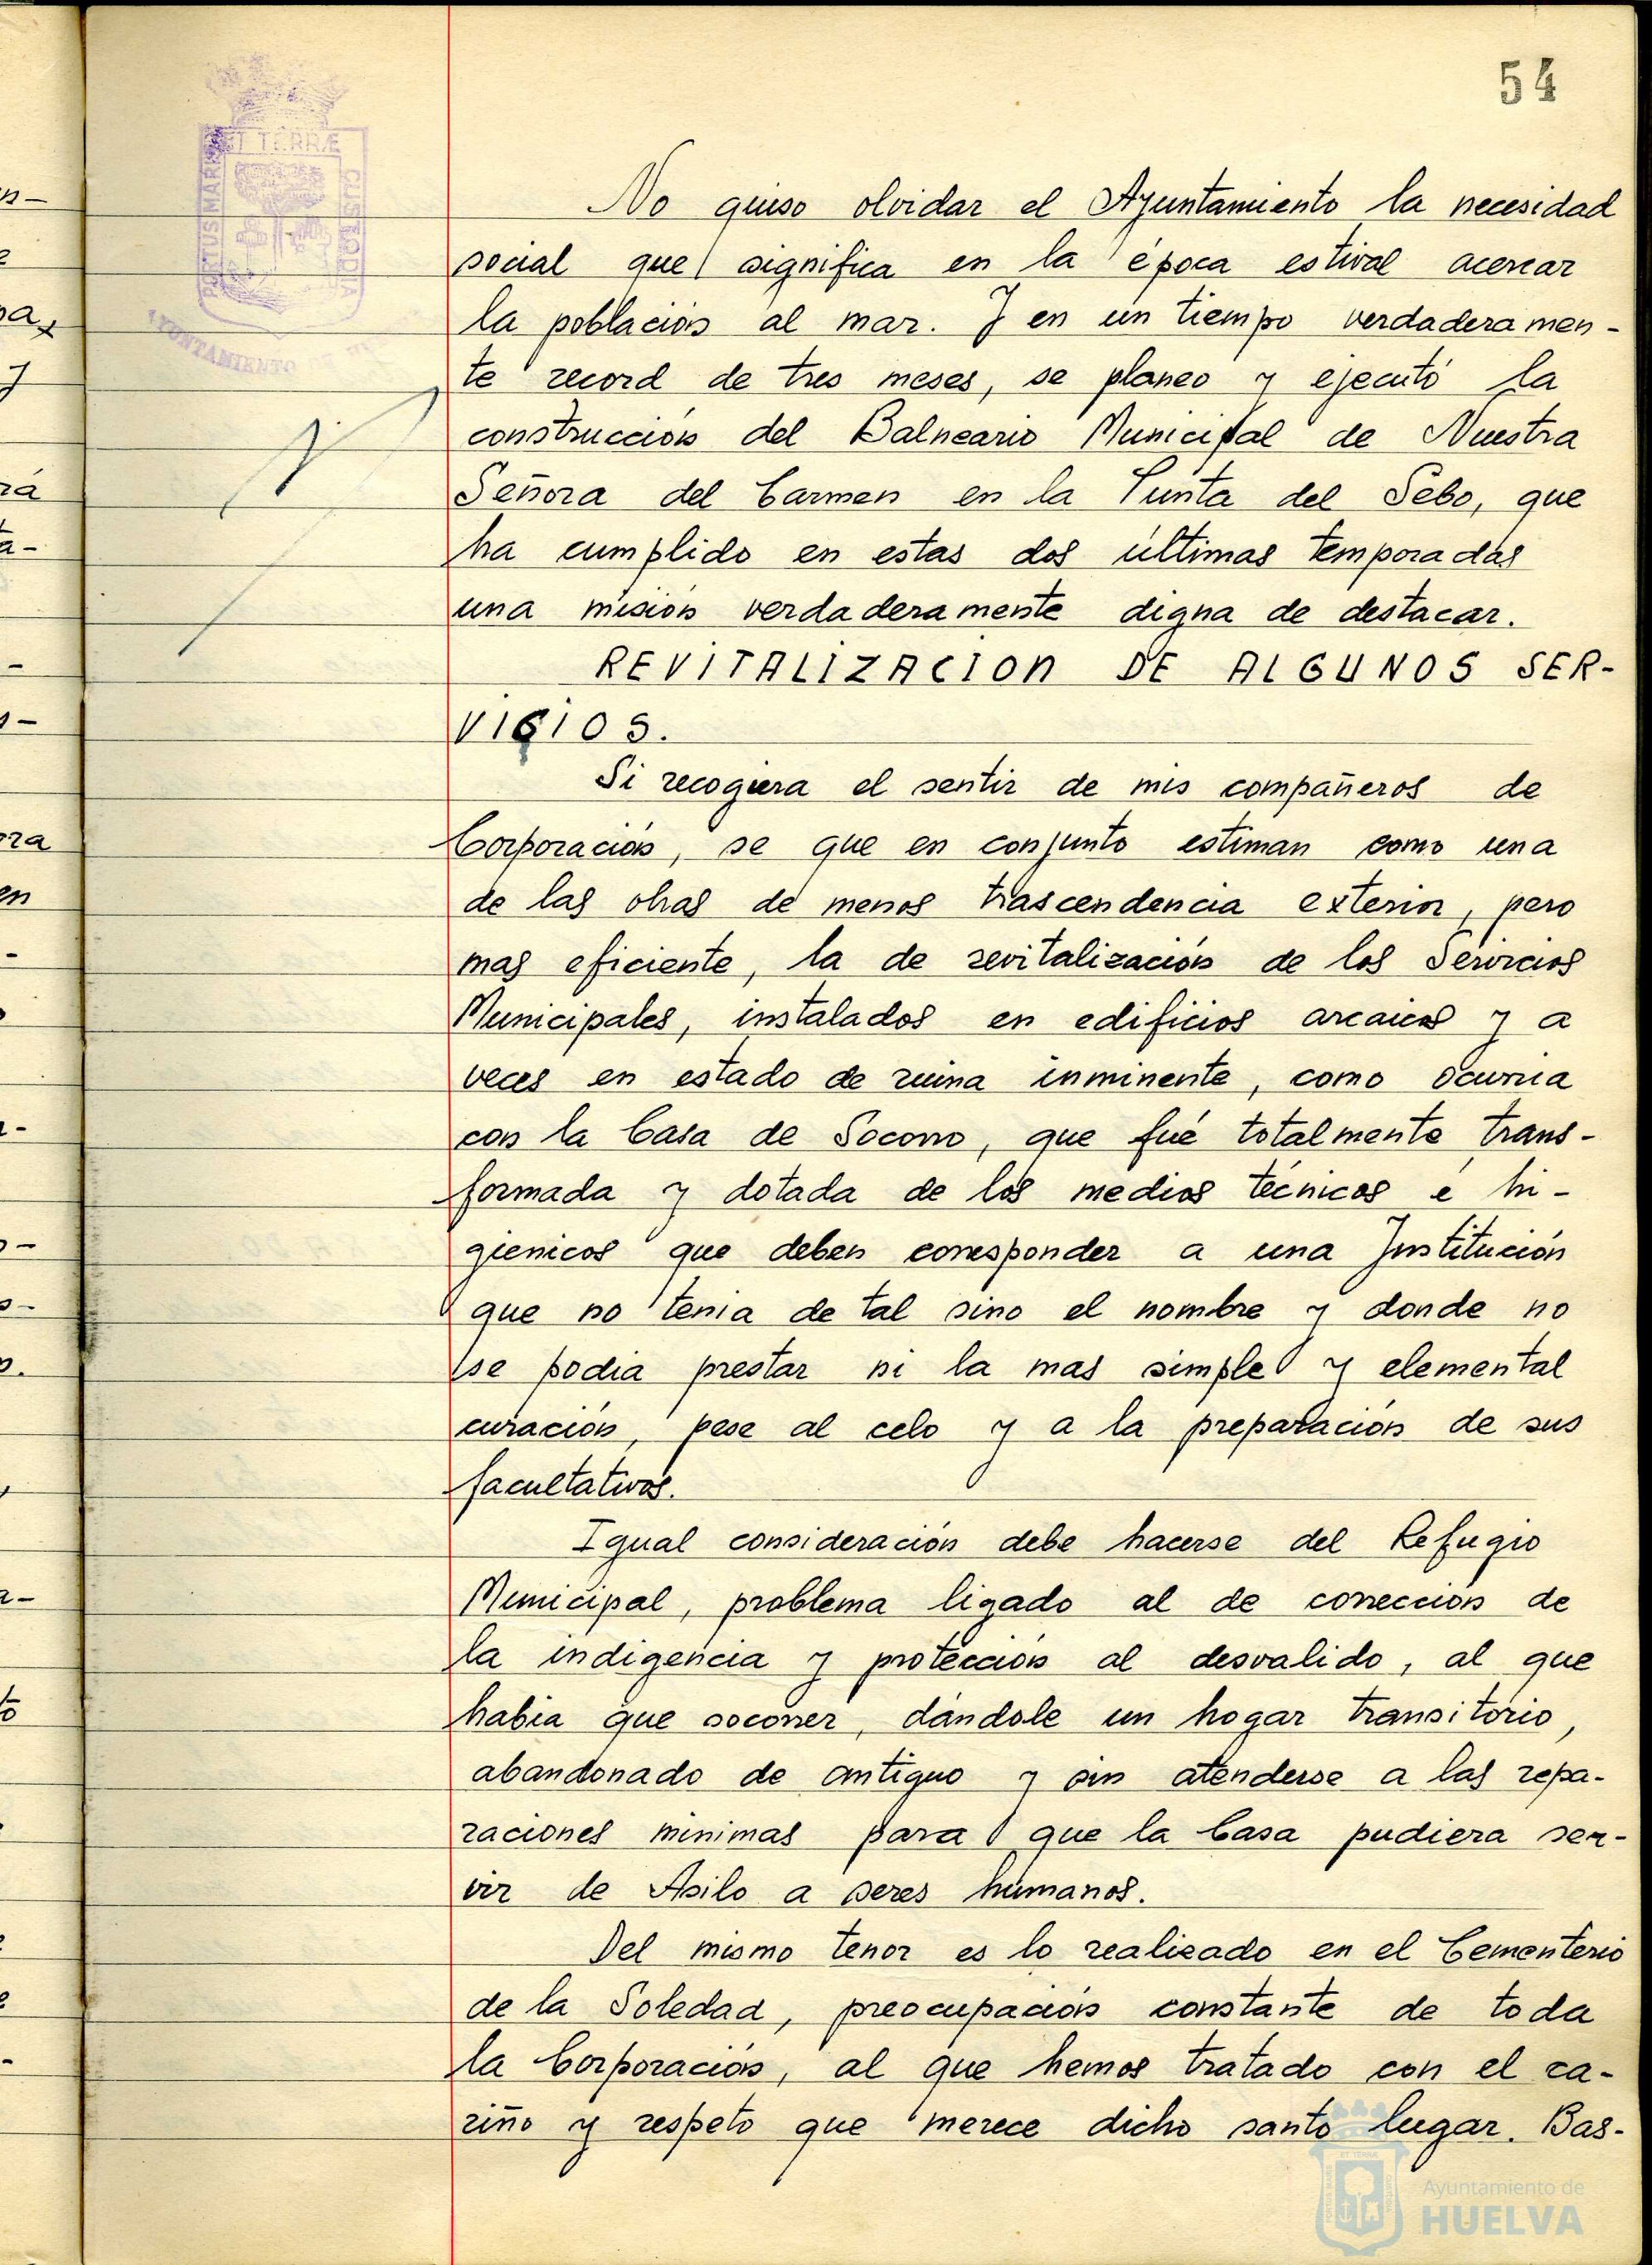 54
ET TERRÆ
PORTUS MARIS
CUSTODIA
AYUNTAMIENTO DE
No quiso olvidar el Ayuntamiento la necesidad
social que significa en la época estival acercar
la población al mar. Y en un tiempo verdaderamen-
te record de tres meses, se planeo y ejecutó la
construcción del Balneario Municipal de Nuestra
Señora del Carmen en la Punta del Sebo, que
ha cumplido en estas dos últimas temporadas
una misión verdaderamente digna de destacar.
REVITALIZACION DE ALGUNOS SER-
VICIOS.
Si recogiera el sentir de mis compañeros de
Corporación, se que en conjunto estiman como una
de las obras de menos trascendencia exterior, pero
mas eficiente, la de revitalización de los Servicios
Municipales, instalados en edificios arcaicos y a
veces en estado de ruina inminente, como ocurria
con la Casa de Socorro, que fué totalmente trans-
formada y dotada de los medios técnicos é hi-
gienicos que deben corresponder a una Institución
que no tenia de tal sino el nombre y donde no
se podia prestar ni la mas simple y elemental
curación, pese al celo y a la preparación de sus
facultativos.
Igual consideración debe hacerse del Refugio
Municipal, problema ligado al de corrección de
la indigencia y protección al desvalido, al que
habia que socorrer, dándole un hogar transitorio,
abandonado de antiguo y sin atenderse a las repa-
raciones minimas para que la Casa pudiera ser-
vir de Asilo a seres humanos.
Del mismo tenor es lo realizado en el Cementerio
de la Soledad, preocupación constante de toda
la Corporación, al que hemos tratado con el ca-
riño y respeto que merece dicho santo lugar. Bas-
Ayuntamiento de
HUELVA